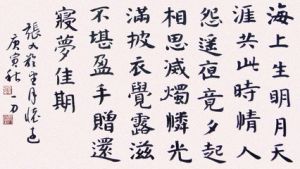 海上生明月天
涯共此時情人
怨遙夜竟夕起
相思滅燭憐光
滿披衣覺露滋
不堪盈手贈還
寢夢佳期
張九齡望月懷遠
庚寅秋一刀